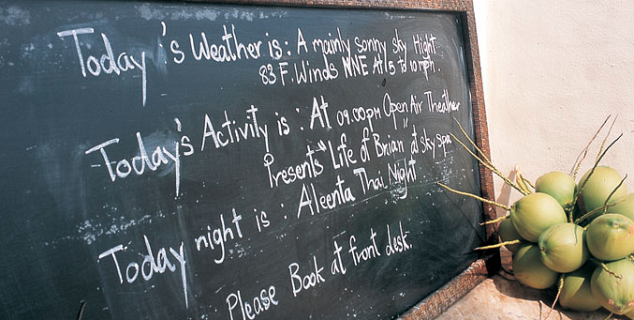 Today's Weather is: A mainly sonny sky Hight
83 F. Winds NNE At 5 to 10 mph.
Today's Activity is: At 09.00pm Open Air Theather
Presents "Life of Brian" at sky spa
Today night is: Aleenta Thai Night
Please Book at front desk.